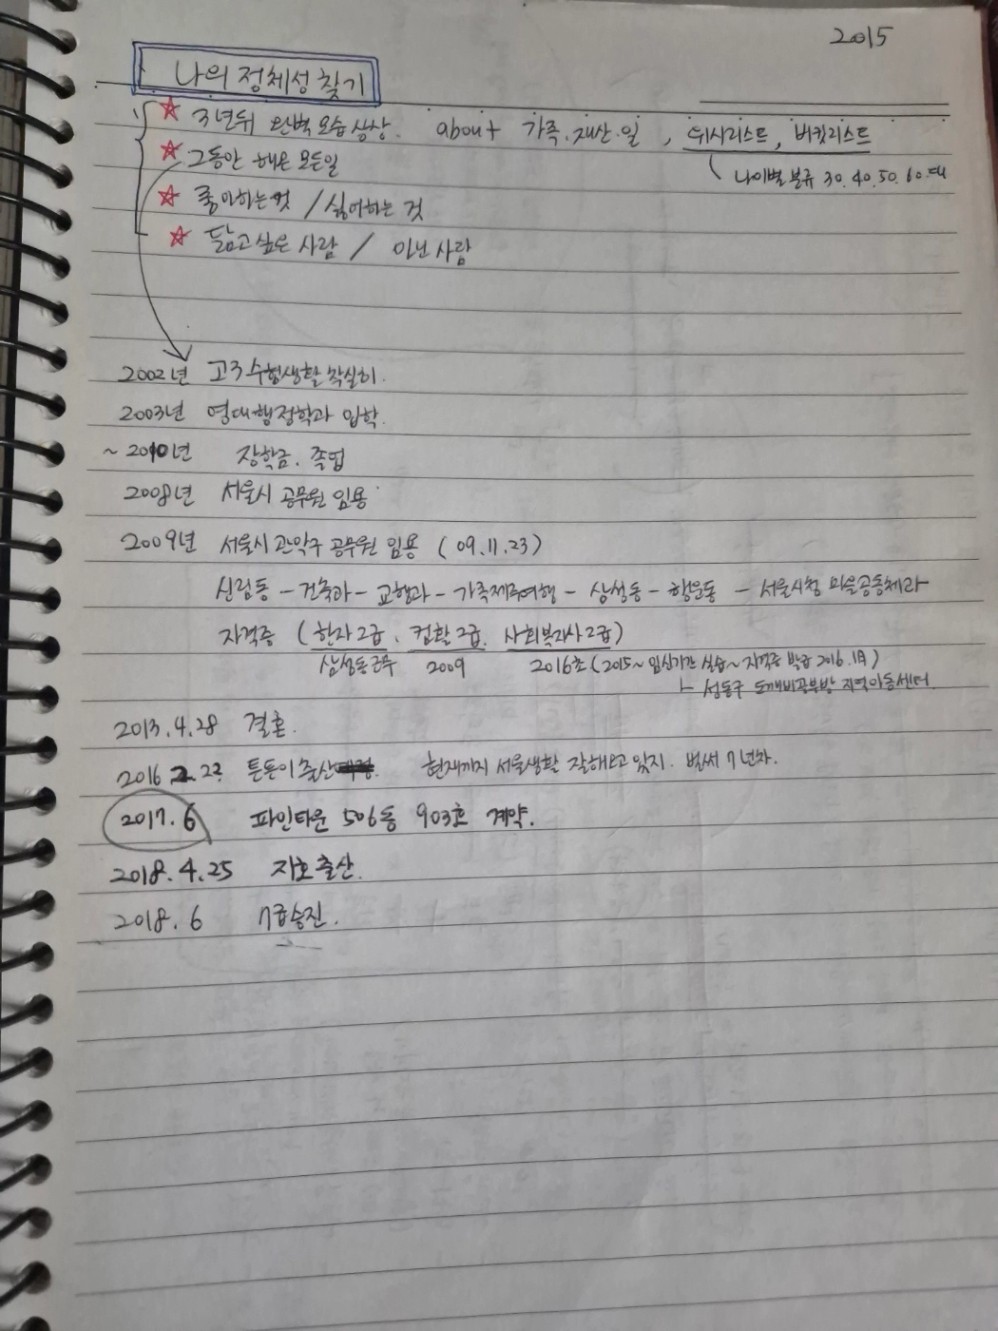 2015
나의 정체성 찾기
☆ 3년뒤 완벽 모습 상상. about 가족.재산.일, 위시리스트, 버킷리스트
나이별 분류 30.40.50.60.대
☆ 그동안 해온 모든일
☆ 좋아하는것 / 싫어하는 것
☆ 닮고싶은 사람 / 아닌 사람
2002년 고3수험생활 착실히.
2003년 영대행정학과 입학.
~2010년 장학금. 졸업
2008년 서울시 공무원 임용
2009년 서울시 관악구 공무원 임용 (09.11.23)
신림동 - 건축과 - 교행과 - 가족제주여행 - 삼성동 - 행운동 - 서울시청 마을공동체과
자격증 (한자2급, 컴활2급, 사회복지사2급)
삼성동근무 2009 2016초 (2015~ 임신기간 실습~ 자격증 발급 2016.1月)
성동구 도깨비공부방 지역아동센터.
2013.4.28 결혼.
2016 2.22. 튼돈이 출산 현재까지 서울생활 잘해오고 있지. 벌써 7년차.
2017.6 파인타운 506동 903호 계약.
2018.4.25 지호출산.
2018.6 7급승진.